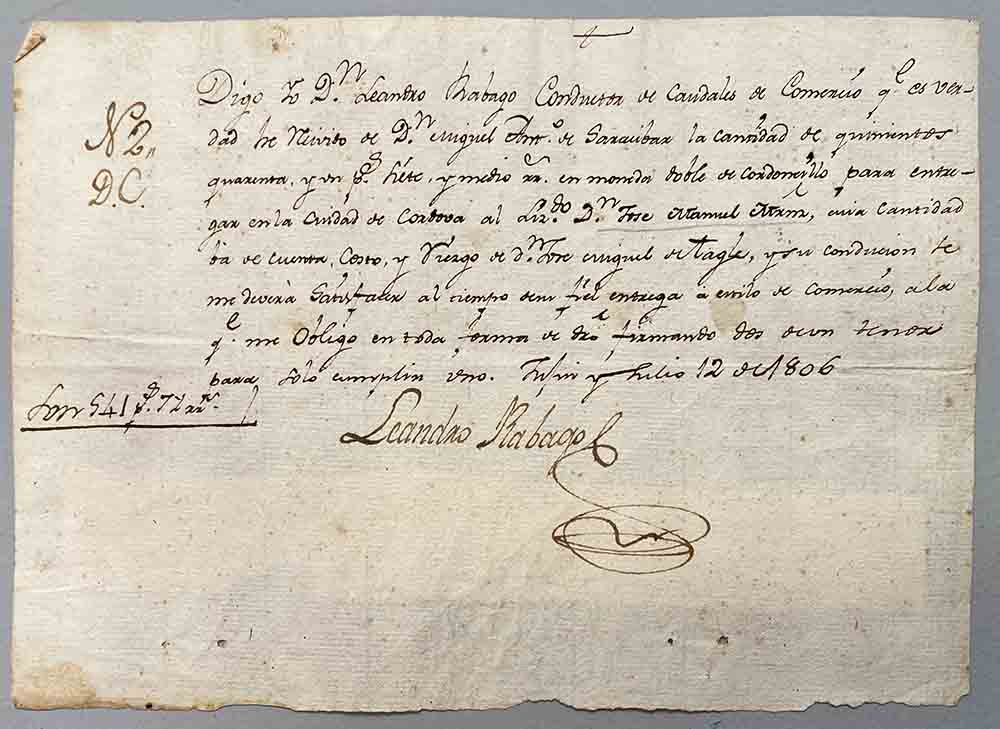 Nº 2,,
D.C.
Digo Yo D.n Leandro Rabago Conductor de Caudales de Comercio q.e es ver-
dad he Recivido de D.n Miguel Ant.o de Saraibar la cantidad de quinientos
quarenta, y un p.s siete, y medio rr. en moneda doble de cordoncillo para entre-
gar en la Ciudad de Cordova al Liz.do D.n Jose Manuel, cuia cantidad
ba de cuenta, Costo, y Riesgo de D.n Jose Miguel de Tagle, y su conducion se
me deverá Satisfacer al tiempo de mi fiel entrega á estilo de Comercio, a la
q.e me Obligo en toda forma de dro firmando dos de un tenor
para solo cumplir uno. y Julio 12 de 1806
Son 541 p.s 7½ rr.s
Leandro Rabago